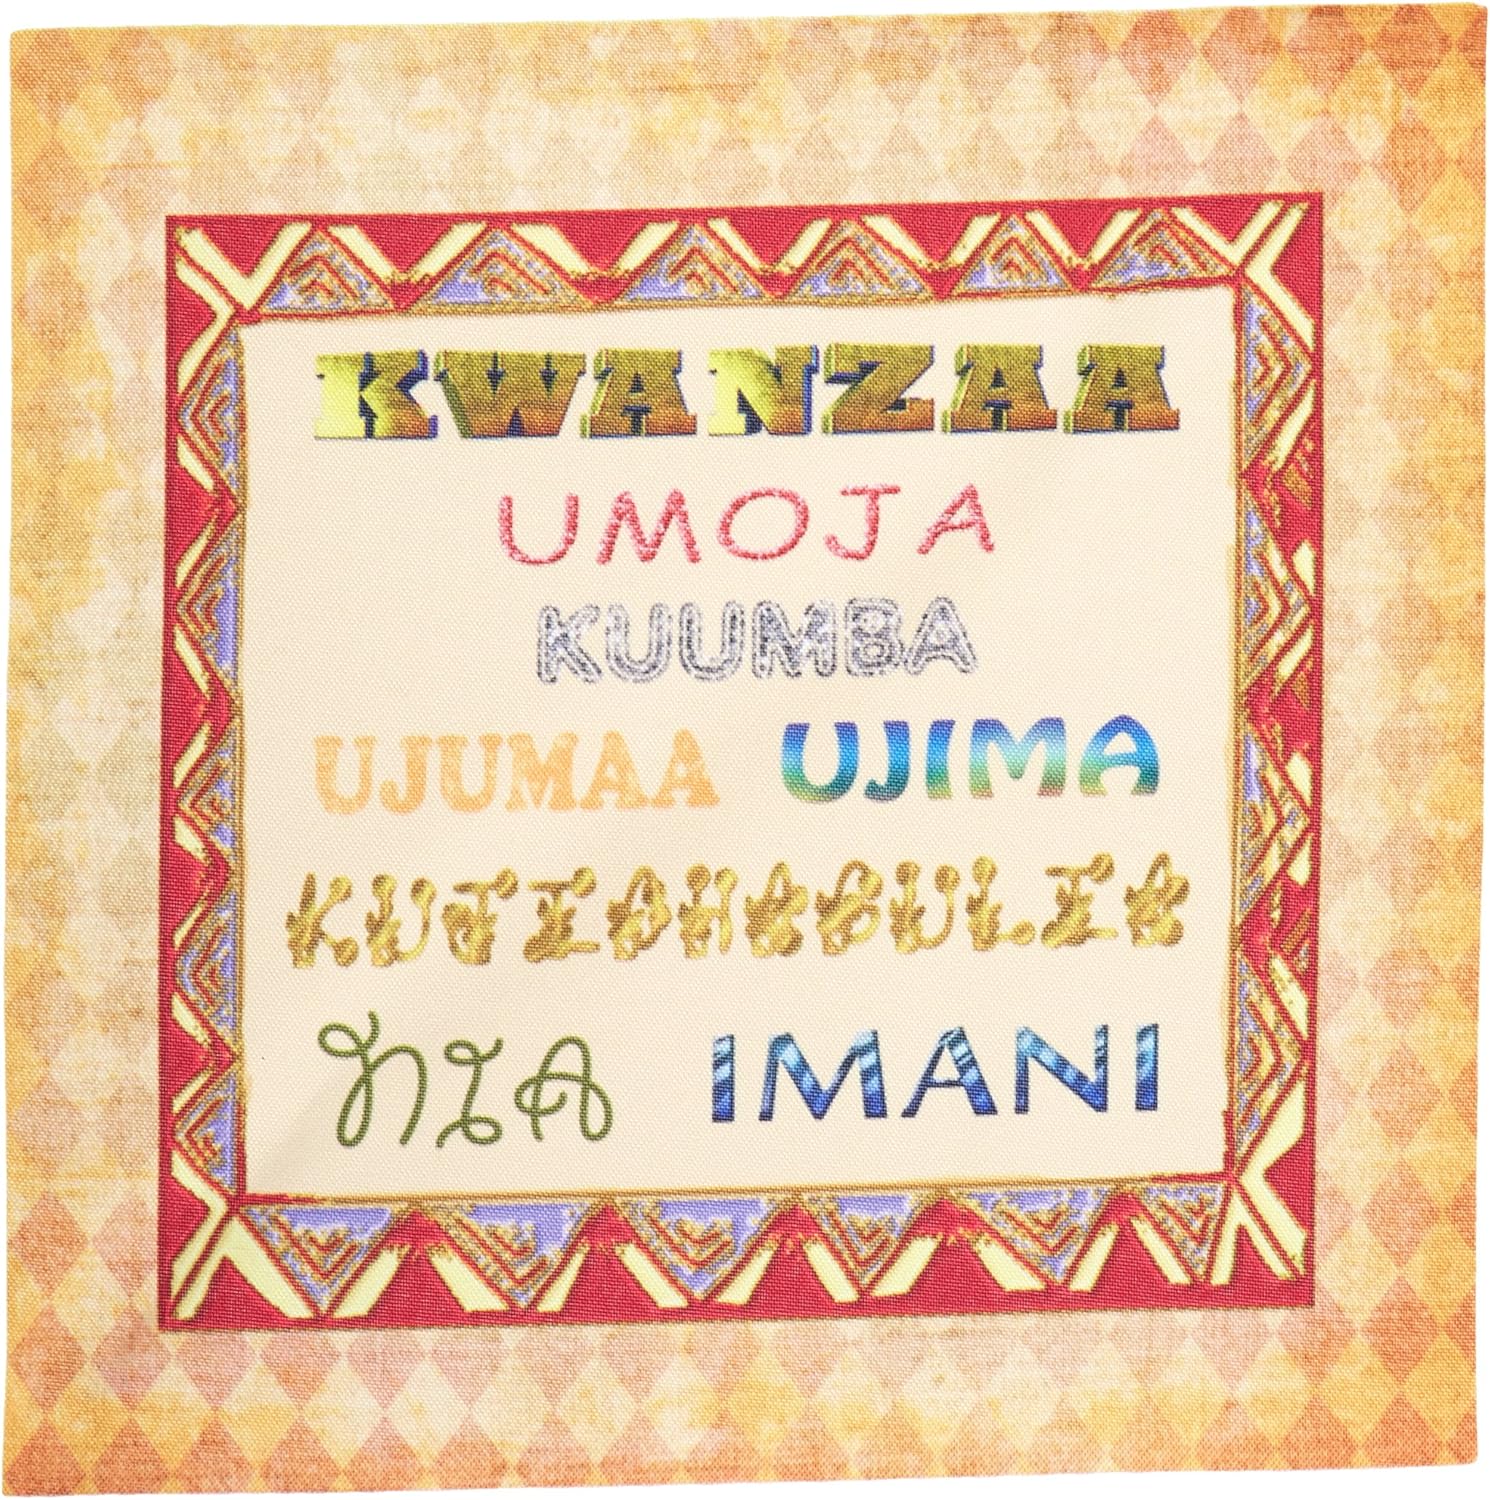 KWANZAA
UMOJA
KUUMBA
UJUMAA UJIMA
KUJICHAGULIA
NIA IMANI